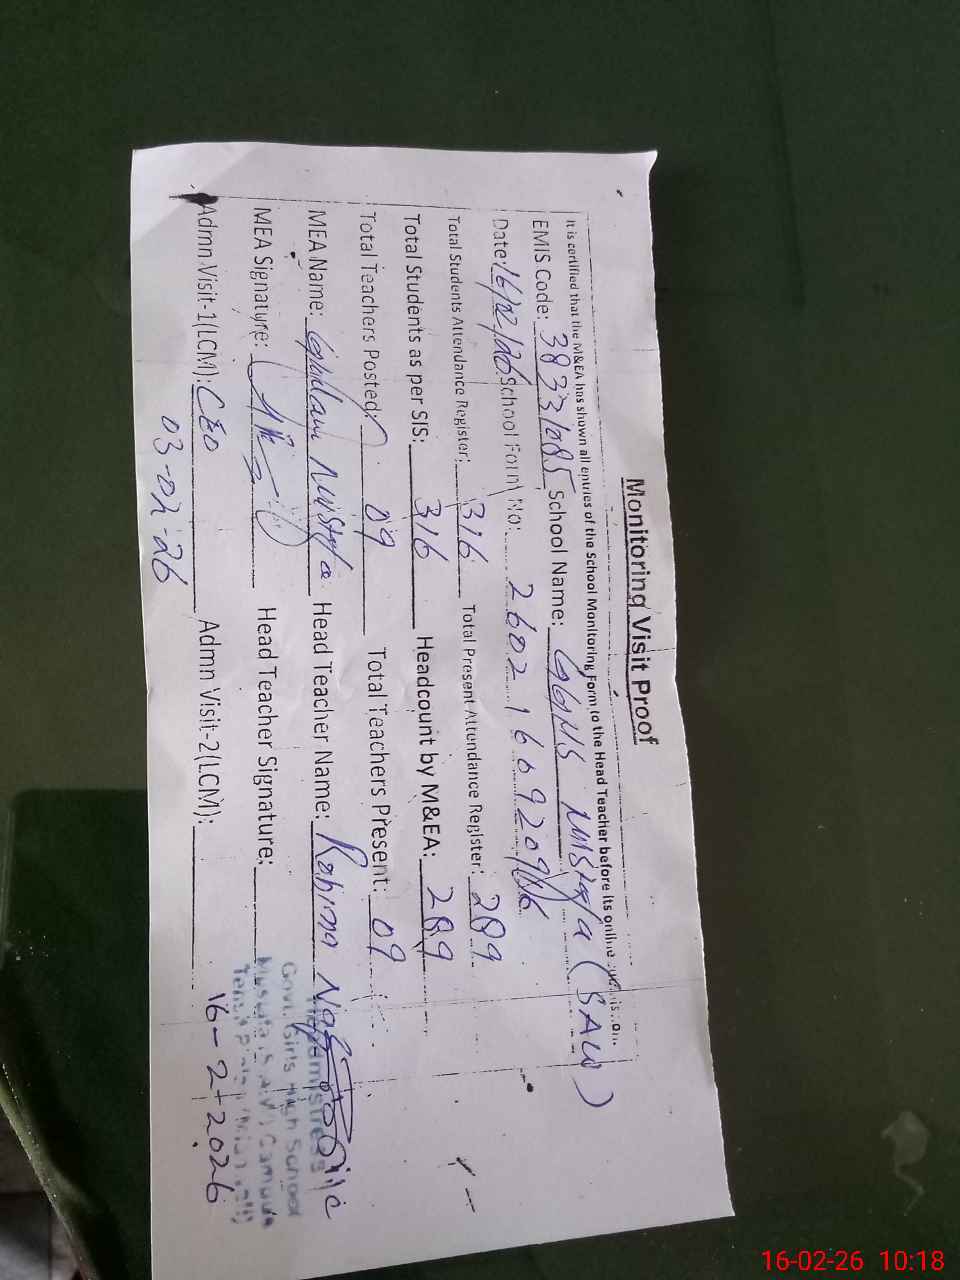 Monitoring Visit Proof
It is certified that the M&EA has shown all entries of the School Monitoring Form to the Head Teacher before its online
EMIS Code: 38331085 School Name: GGHS Mustafa (SAW)
Date: 16/02/26 School Form No: 2602166920
Total Students Attendance Register: 316 Total Present Attendance Register: 289
Total Students as per SIS: 316 Headcount by M&EA: 289
Total Teachers Posted: 09 Total Teachers Present: 09
MEA Name: Ghulam Mustafa Head Teacher Name: Rahima
MEA Signature: Head Teacher Signature:
Headmistress
Govt. Girls High School
Admn Visit-1(LCM): CEO Admn Visit-2(LCM):
03-02-26
16-2-2026
16-02-26 10:18